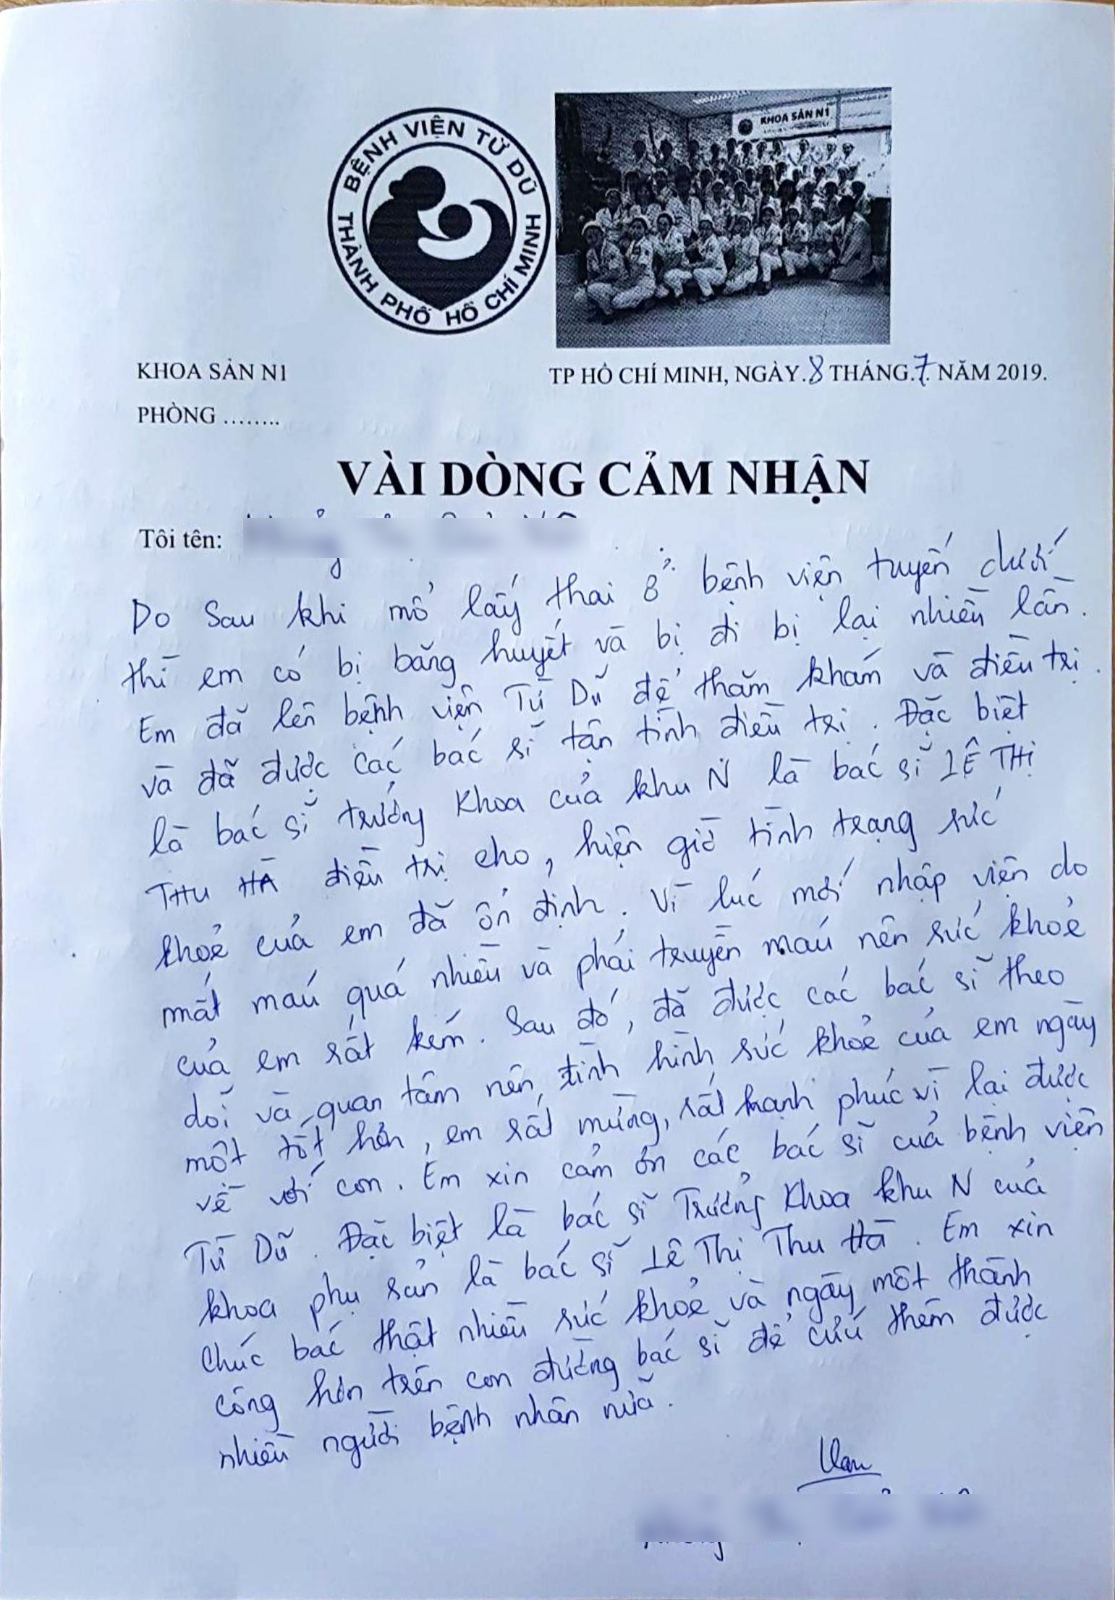 BỆNH VIỆN TỪ DŨ
THÀNH PHỐ HỒ CHÍ MINH
KHOA SẢN N1
KHOA SẢN N1
TP HỒ CHÍ MINH, NGÀY.8 THÁNG.7. NĂM 2019.
PHÒNG ........
VÀI DÒNG CẢM NHẬN
Tôi tên:
Do sau khi mổ lấy thai ở bệnh viện tuyến dưới
thì em có bị băng huyết và bị đi bị lại nhiều lần.
Em đã lên bệnh viện Từ Dũ để thăm khám và điều trị.
và đã được các bác sĩ tận tình điều trị. Đặc biệt
là bác sĩ trưởng khoa của khu N là bác sĩ LÊ THỊ
THU HÀ điều trị cho, hiện giờ tình trạng sức
khoẻ của em đã ổn định. Vì lúc mới nhập viện do
mất máu quá nhiều và phải truyền máu nên sức khoẻ
của em rất kém. Sau đó, đã được các bác sĩ theo
dõi và quan tâm nên, tình hình sức khoẻ của em ngày
một tốt hơn, em rất mừng, rất hạnh phúc vì lại được
về với con. Em xin cảm ơn các bác sĩ của bệnh viện
Từ Dũ. Đặc biệt là bác sĩ Trưởng Khoa khu N của
khoa phụ sản là bác sĩ Lê Thị Thu Hà. Em xin
chúc bác thật nhiều sức khoẻ và ngày một thành
công hơn trên con đường bác sĩ để cứu thêm được
nhiều người bệnh nhân nữa.